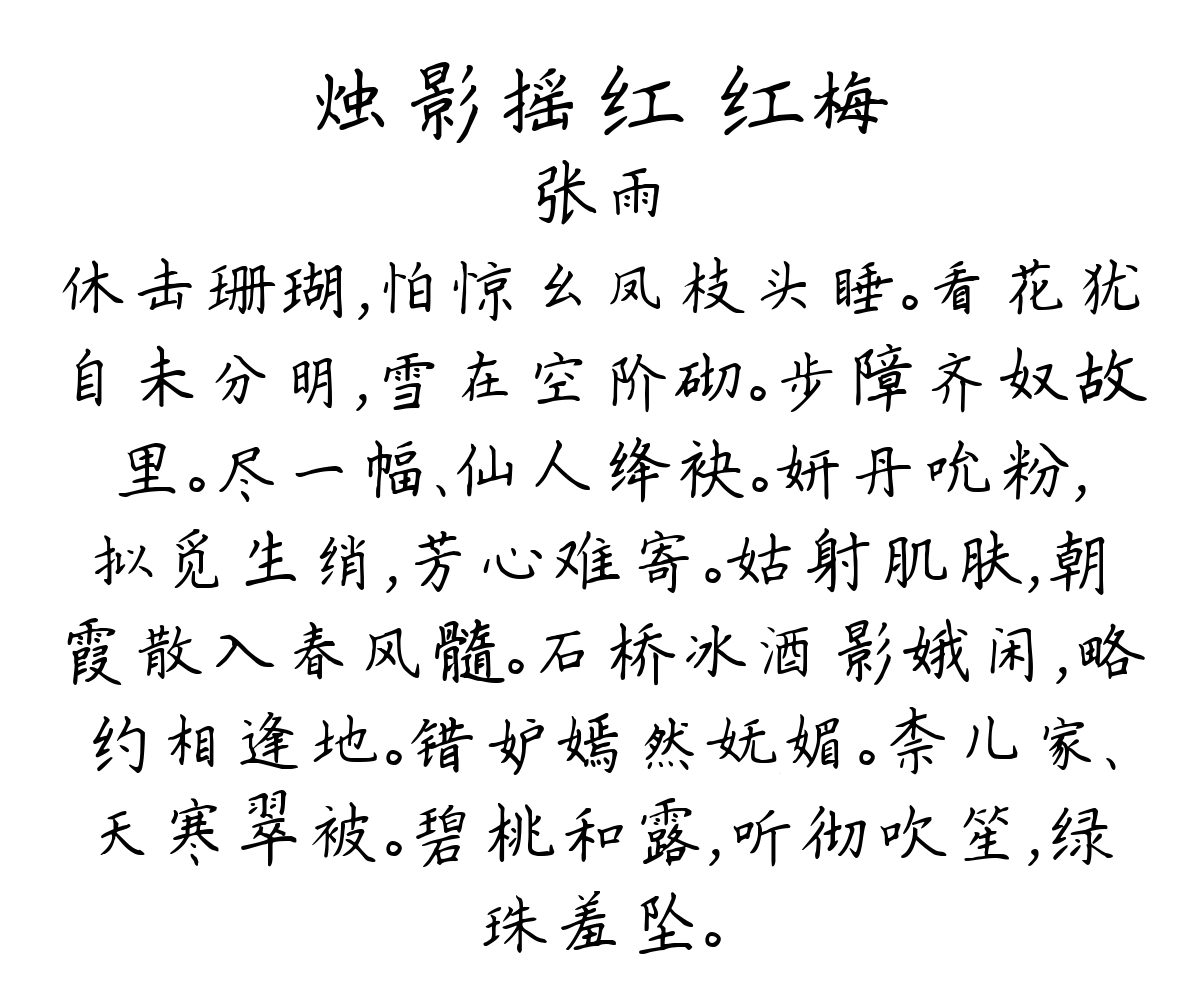 烛影摇红 红梅
张雨
休击珊瑚,怕惊幺凤枝头睡。看花犹
自未分明,雪在空阶砌。步障齐奴故
里。尽一幅、仙人绛袂。妍丹吮粉,
拟觅生绡,芳心难寄。姑射肌肤,朝
霞散入春风髓。石桥冰酒影娥闲,略
约相逢地。错妒嫣然妩媚。柰儿家、
天寒翠被。碧桃和露,听彻吹笙,绿
珠羞坠。